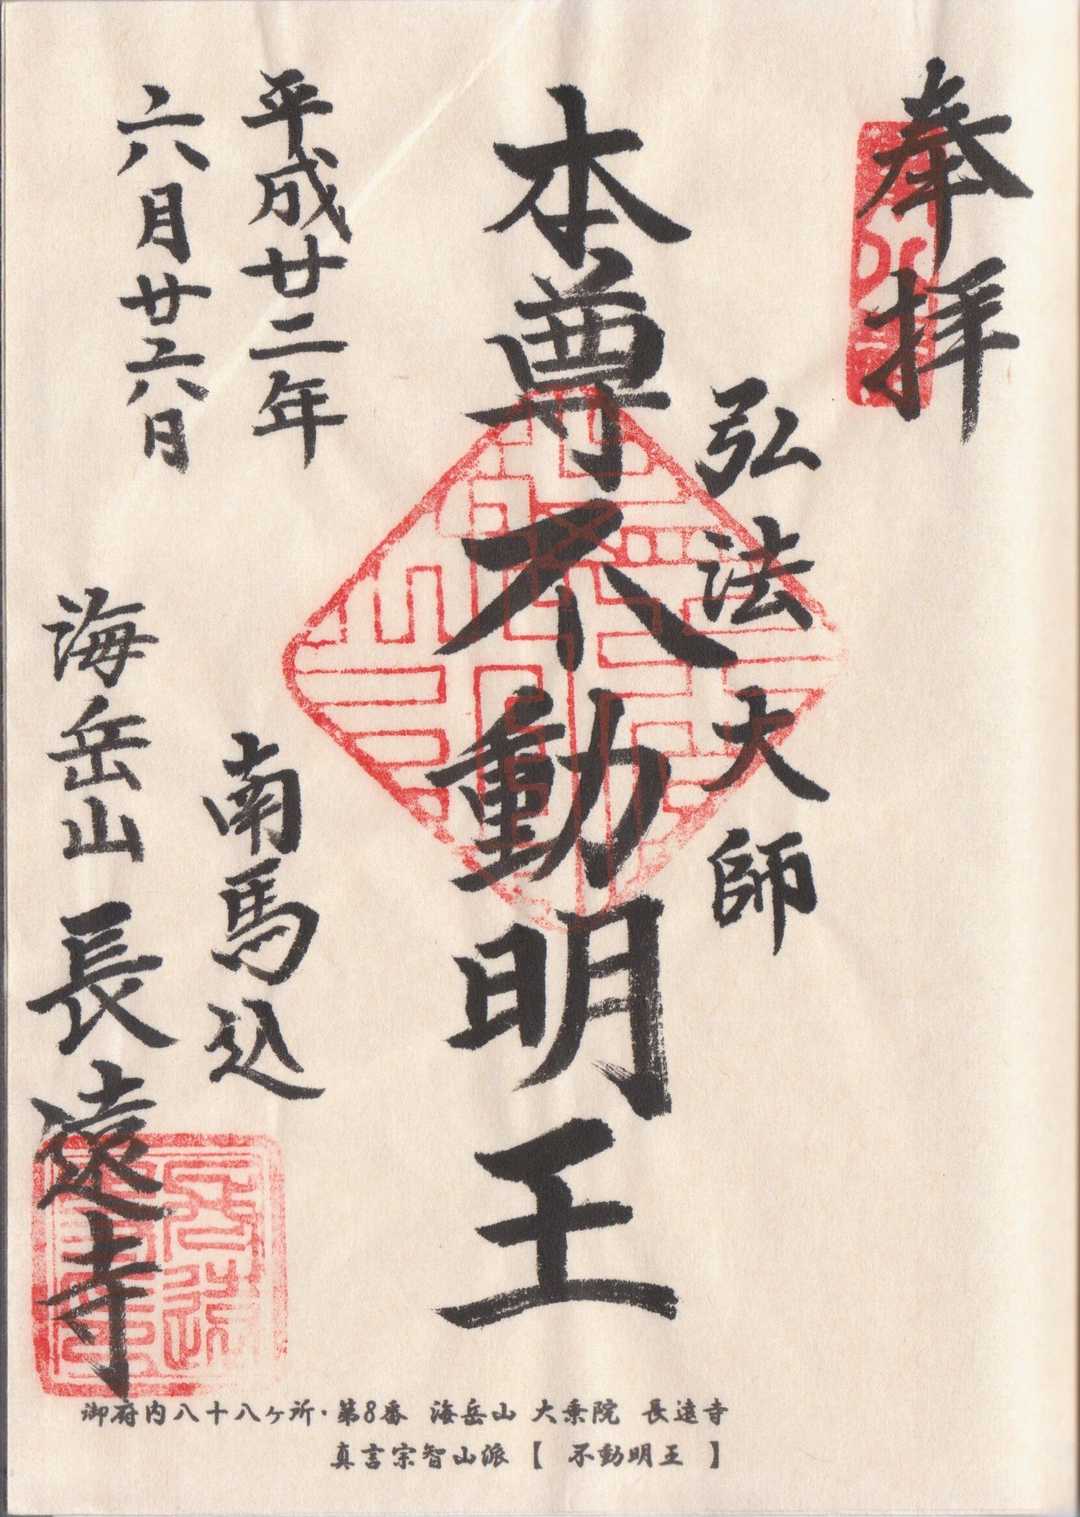 奉拝
弘法大師
本尊不動明王
平成廿二年
六月廿六日
南馬込
海岳山長遠寺
御府内八十八ヶ所・第8番 海岳山 大乗院 長遠寺
真言宗智山派【 不動明王 】